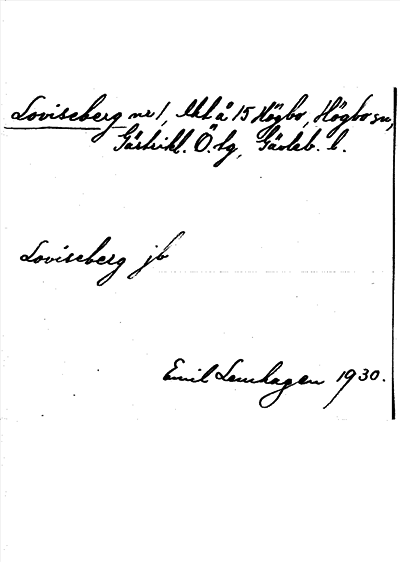 Loviseberg nr 1, lht å 15 Högbo, Högbo sn,
Gästrikl. Ö. tg, Gävleb. l.
Loviseberg jb
Emil Lemhagen 1930.